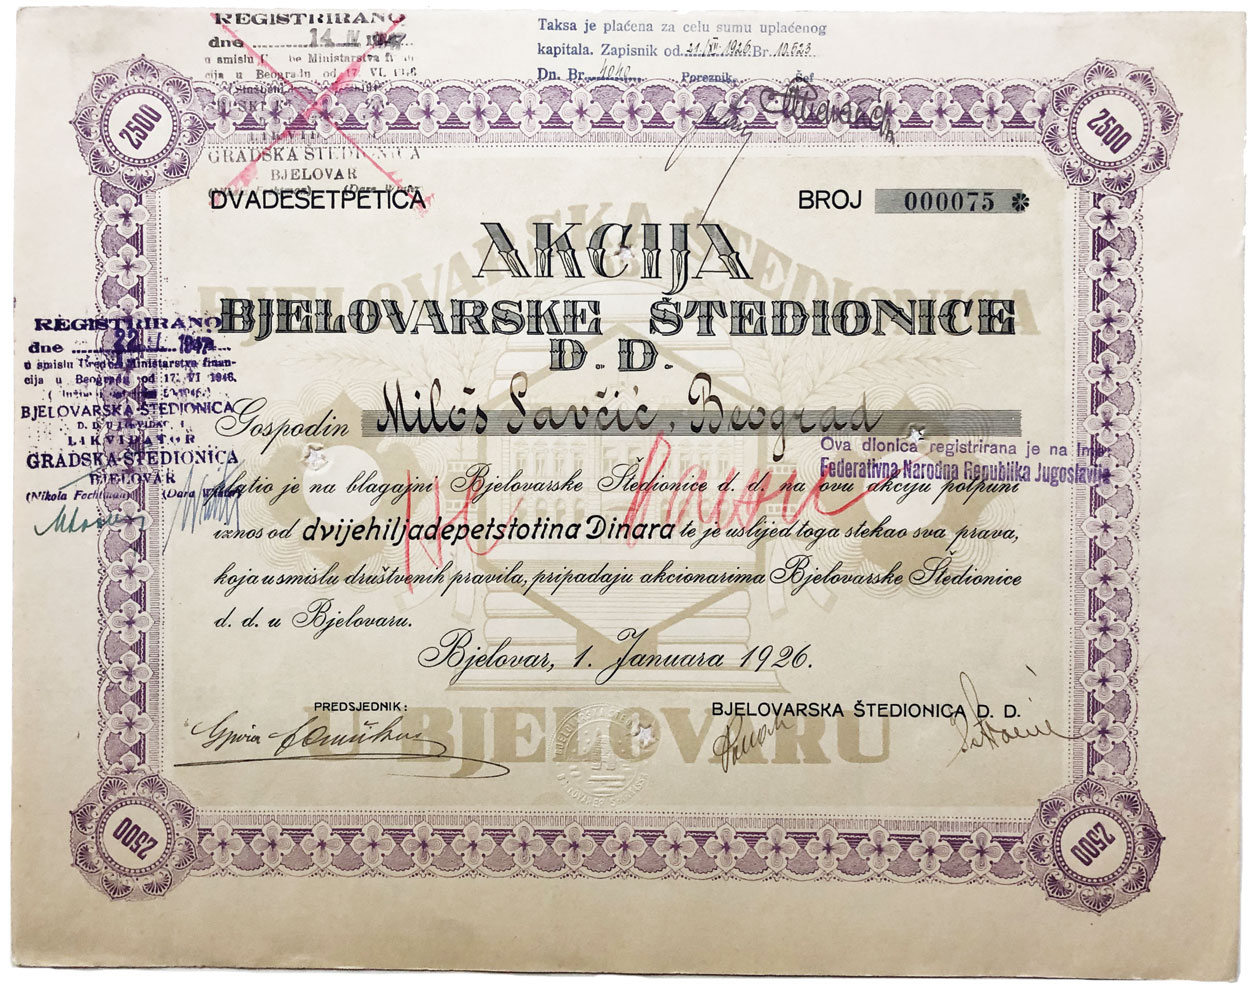 REGISTRIRANO
dne 14 IV 1947
Ministarstva
cija u Beogradu od 17. VI
GRADSKA ŠTEDIONICA
BJELOVAR
Taksa je plaćena za celu sumu uplaćenog
kapitala. Zapisnik od 21/XII 1926 Br. 10.523
Dn. Br. 4040 Poreznik, Šef
2500
2500
DVADESETPETICA
BROJ 000075
BJELOVARSKA ŠTEDIONICA
AKCIJA
BJELOVARSKE ŠTEDIONICE
D. D.
REGISTRIRANO
dne 22. I. 1947
u smislu Uredbe Ministarstva finan-
cija u Beogradu od 17. VI 1946.
BJELOVARSKA ŠTEDIONICA
D. D. U LIKVIDACIJI
LIKVIDATOR
GRADSKA ŠTEDIONICA
BJELOVAR
(Nikola Fochtman) (Dara Winter)
Gospodin Miloš Savčić, Beograd
Ova dionica registrirana je na Ime:
Federativna Narodna Republika Jugoslavija
platio je na blagajni Bjelovarske Štedionice d. d. na ovu akciju potpuni
iznos od dvijehiljadepetstotina Dinara te je uslijed toga stekao sva prava,
koja u smislu društvenih pravila, pripadaju akcionarima Bjelovarske Štedionice
d. d. u Bjelovaru.
Bjelovar, 1. Januara 1926.
PREDSJEDNIK:
BJELOVARSKA ŠTEDIONICA D. D.
U BJELOVARU
2500
2500